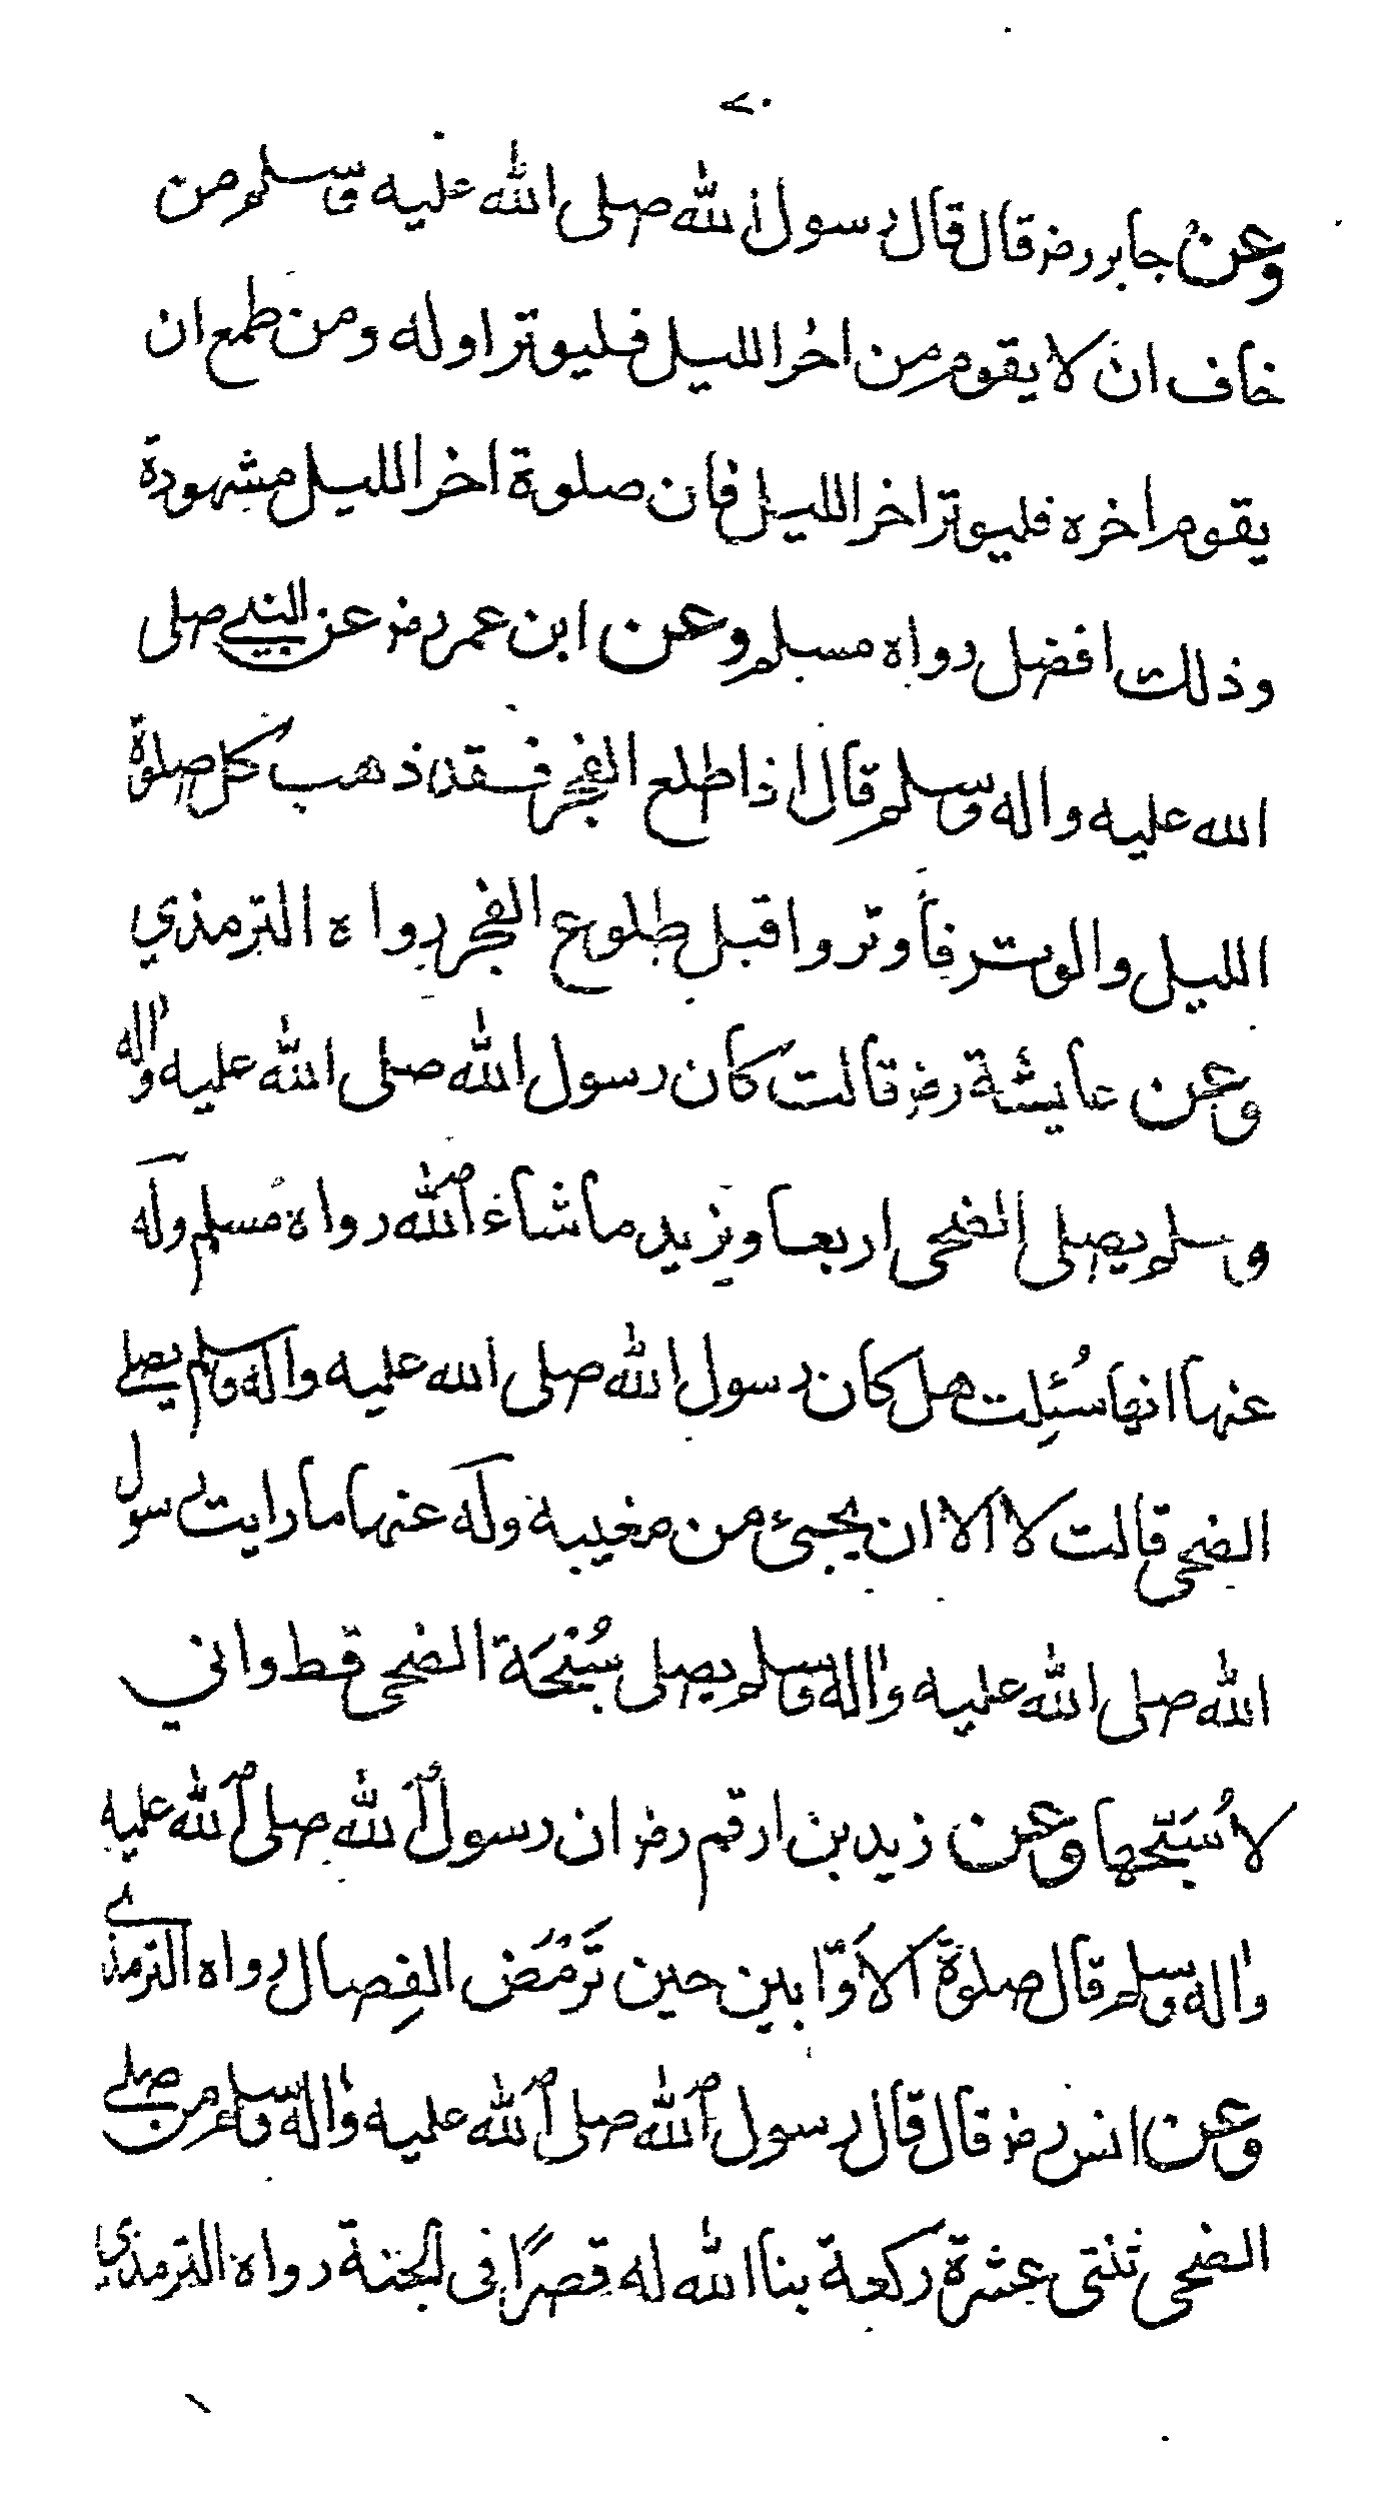 ٧٠
وعن جابر رضـ قال قال رسول الله صلى الله عليه وسلم من
خاف ان لا يقوم من اخر الليل فليوتر اوله ومن طمع ان
يقوم اخره فليوتر اخر الليل فان صلوة اخر الليل مشهودة
وذلك افضل رواه مسلم وعن ابن عمر رضـ عن النبي صلى
الله عليه واله وسلم قال اذا طلع الفجر فقد ذهب كل صلوة
الليل والوتر فأوتروا قبل طلوع الفجر رواه الترمذي
وعن عايشة رضـ قالت كان رسول الله صلى الله عليه واله
وسلم يصلى الضحى اربعا ويزيد ما شاء الله رواه مسلم وله
عنها انها سُئِلت هل كان رسول الله صلى الله عليه واله وسلم يصلي
الضحى قالت لا الا ان يجئ من مغيبه وله عنها ما رايت رسول
الله صلى الله عليه واله وسلم يصلى سُبْحَة الضحى قط واني
لاسُبَّحها وعن زيد بن ارقم رضـ ان رسول الله صلى الله عليه
واله وسلم قال صلوة الاَوَّابين حين تَرْمَض الفِصال رواه الترمذي
وعن انس رضـ قال قال رسول الله صلى الله عليه واله وسلم من صلى
الضحى ثنتى عشرة ركعة بنا الله له قصرًا فى الجنة رواه الترمذي